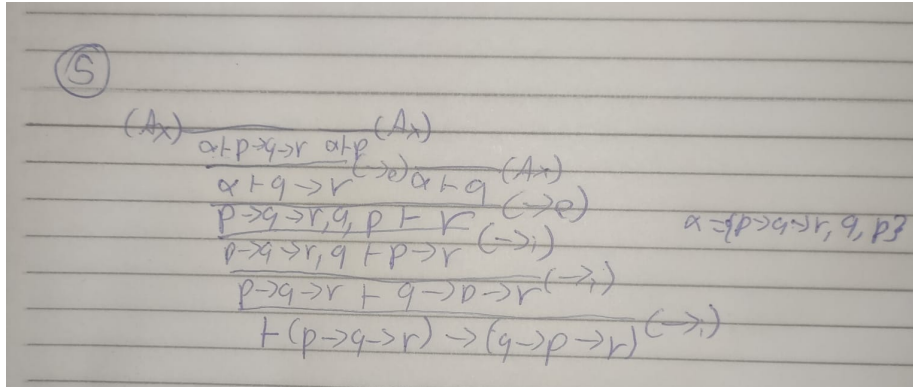 5
(Ax) (Ax)
α⊢p→q→r α⊢p
α⊢q→r (→e) α⊢q (Ax)
p→q→r, q, p ⊢ r (→e) α={p→q→r, q, p}
p→q→r, q ⊢ p→r (→i)
p→q→r ⊢ q→p→r (→i)
⊢(p→q→r)→(q→p→r) (→i)